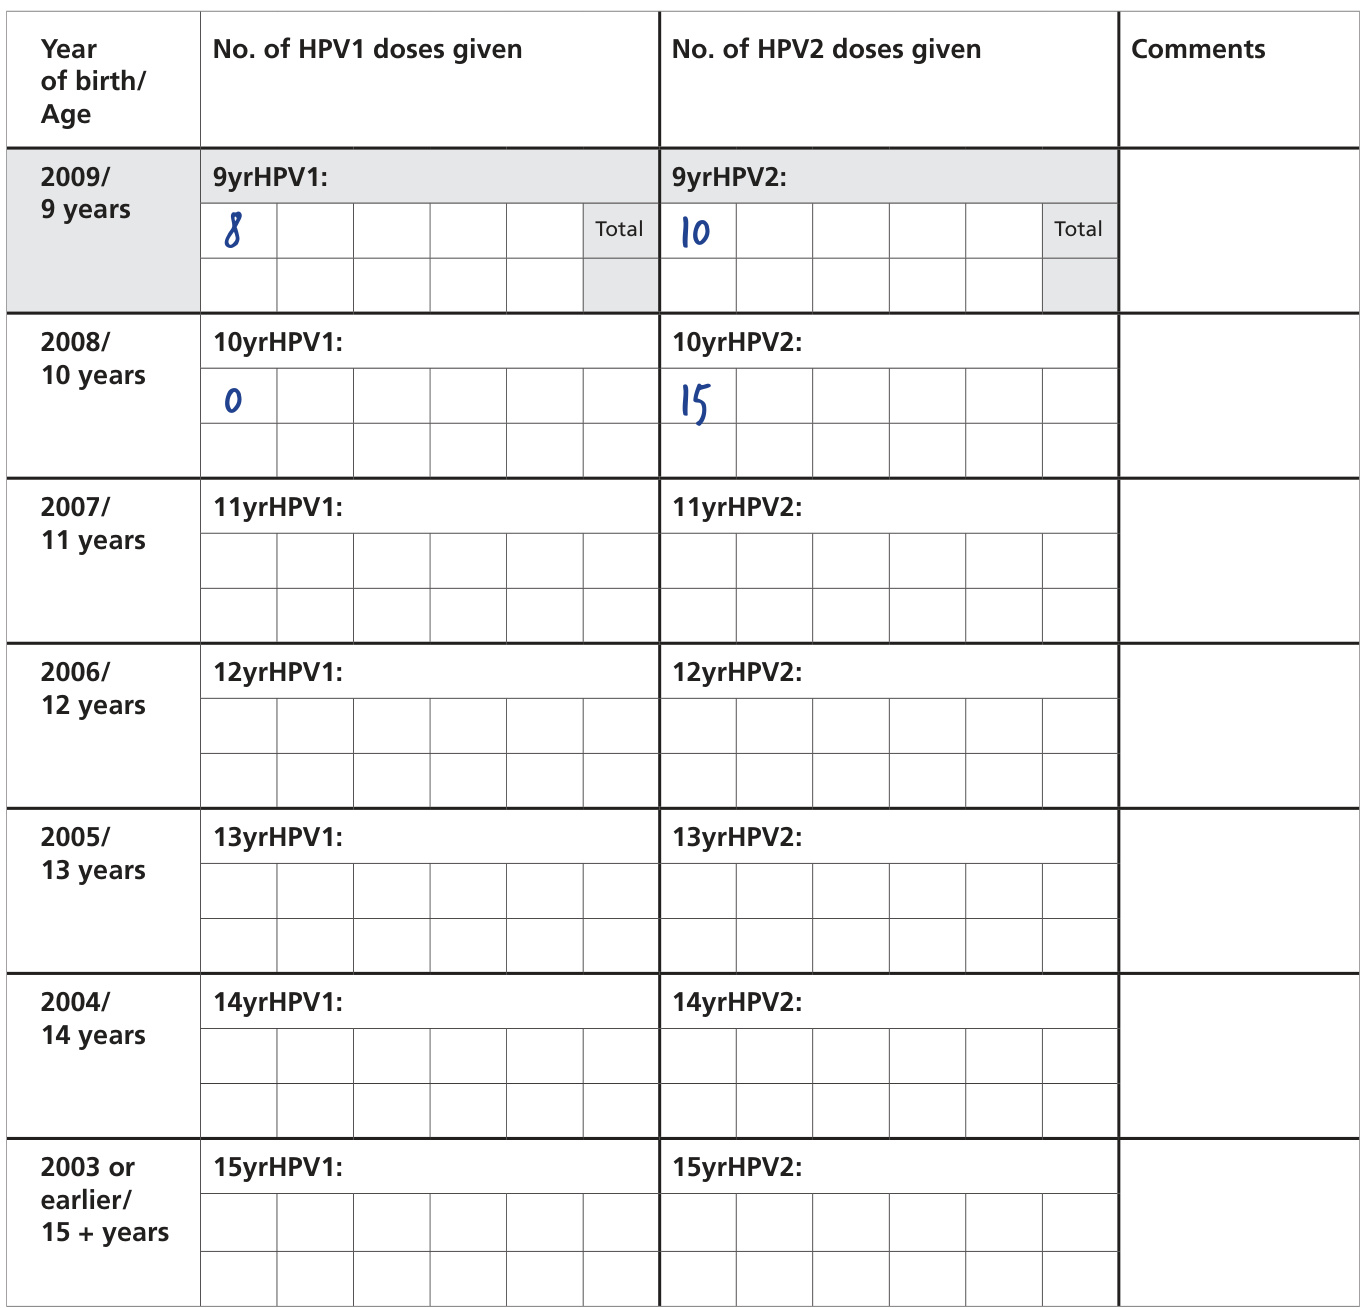 Year
of birth/
Age
No. of HPV1 doses given
No. of HPV2 doses given
Comments
2009/
9 years
9yrHPV1:
9yrHPV2:
8
Total
10
Total
2008/
10 years
10yrHPV1:
10yrHPV2:
0
15
2007/
11 years
11yrHPV1:
11yrHPV2:
2006/
12 years
12yrHPV1:
12yrHPV2:
2005/
13 years
13yrHPV1:
13yrHPV2:
2004/
14 years
14yrHPV1:
14yrHPV2:
2003 or
earlier/
15 + years
15yrHPV1:
15yrHPV2: